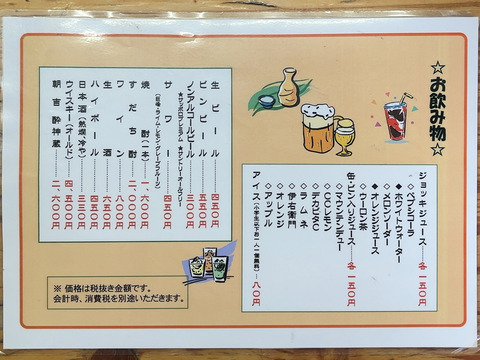 ☆お飲み物☆
ジョッキジュース……各一五〇円
◇ペプシコーラ
◆ホワイトウォーター
◇メロンソーダー
◆オレンジジュース
◇ウーロン茶
缶・ビン入りジュース……各一五〇円
◇マウンテンデュー
◇CCレモン
◇デカビタC
◇ラムネ
◇伊右衛門
◇オレンジ
◇アップル
アイス(小学生以下お一人一個無料)……八〇円
生ビール……四五〇円
ビンビール……五五〇円
ノンアルコールビール……三〇〇円
★サッポロプレミアム ★サントリーオールフリー
サワー……四五〇円
(巨峰・ライム・レモン・グレープフルーツ)
焼酎(一本)……一、六〇〇円
すだち酎……二、一〇〇円
ワイン……八〇〇円
生酒……六五〇円
ハイボール……四五〇円
日本酒(熱燗、冷や)……三五〇円
ウイスキー(オールド)……四、五〇〇円
朝宮 酔神蔵……二、六〇〇円
※ 価格は税抜き金額です。
会計時、消費税を別途いただきます。